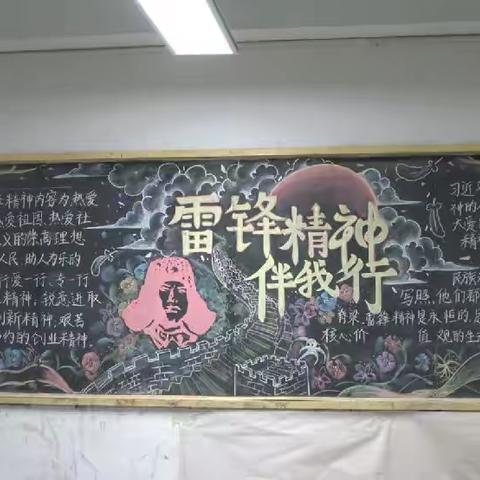 精神内容为热爱
爱祖国、热爱社
义的崇高理想
人民 助人为乐的
行爱一行、专一行
精神，锐意进取
创新精神，艰苦
的创业精神.
雷锋精神
伴我行
习近
神的
大爱
精
民族
写照，他们都
脊梁.雷锋精神是永恒的，是
核心价 值 观的生